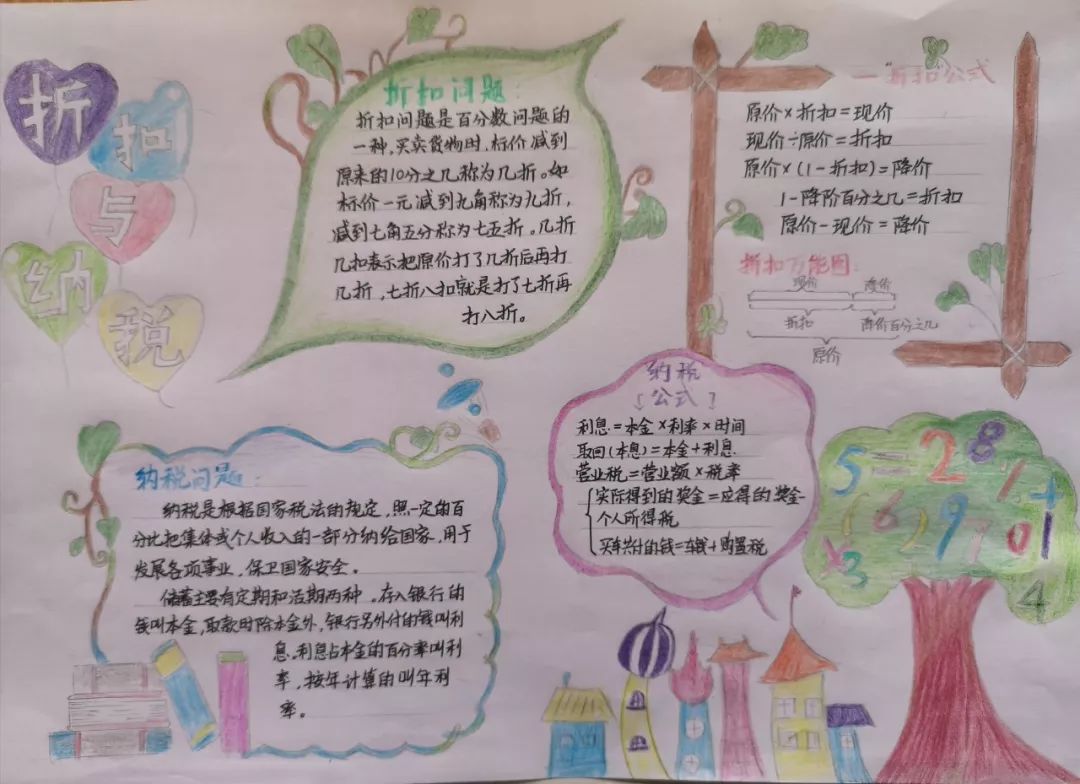 折扣与纳税
折扣问题：
折扣问题是百分数问题的
一种，买卖货物时，标价减到
原来的10分之几称为几折。如
标价一元减到九角称为九折，
减到七角五分称为七五折。几折
几扣表示把原价打了几折后再打
几折，七折八扣就是打了七折再
打八折。
折扣公式
原价×折扣=现价
现价÷原价=折扣
原价×(1-折扣)=降价
1-降阶百分之几=折扣
原价-现价=降价
折扣万能图：
现价 降价
折扣 降价百分之几
原价
纳税
公式
利息=本金×利率×时间
取回(本息)=本金+利息
营业税=营业额×税率
实际得到的奖金=应得的奖金-
个人所得税
买车共付的钱=车钱+购置税
纳税问题：
纳税是根据国家税法的规定，照一定的百
分比把集体或个人收入的一部分纳给国家，用于
发展各项事业，保卫国家安全。
储蓄主要有定期和活期两种。存入银行的
钱叫本金，取款时除本金外，银行另外付的钱叫利
息，利息占本金的百分率叫利
率，按年计算的叫年利
率。
5 = 2 8 1 +
( 6 ) 9 7 0 1
× 3 4